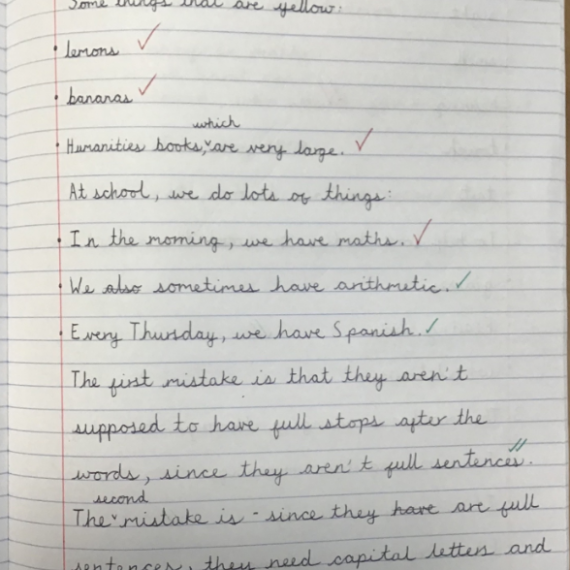 Some things that are yellow:
• lemons
• bananas
which
• Humanities books, are very large.
At school, we do lots of things:
• In the morning, we have maths.
• We also sometimes have arithmetic.
• Every Thursday, we have Spanish.
The first mistake is that they aren't
supposed to have full stops after the
words, since they aren't full sentences.
second
The mistake is - since they have are full
sentences, they need capital letters and